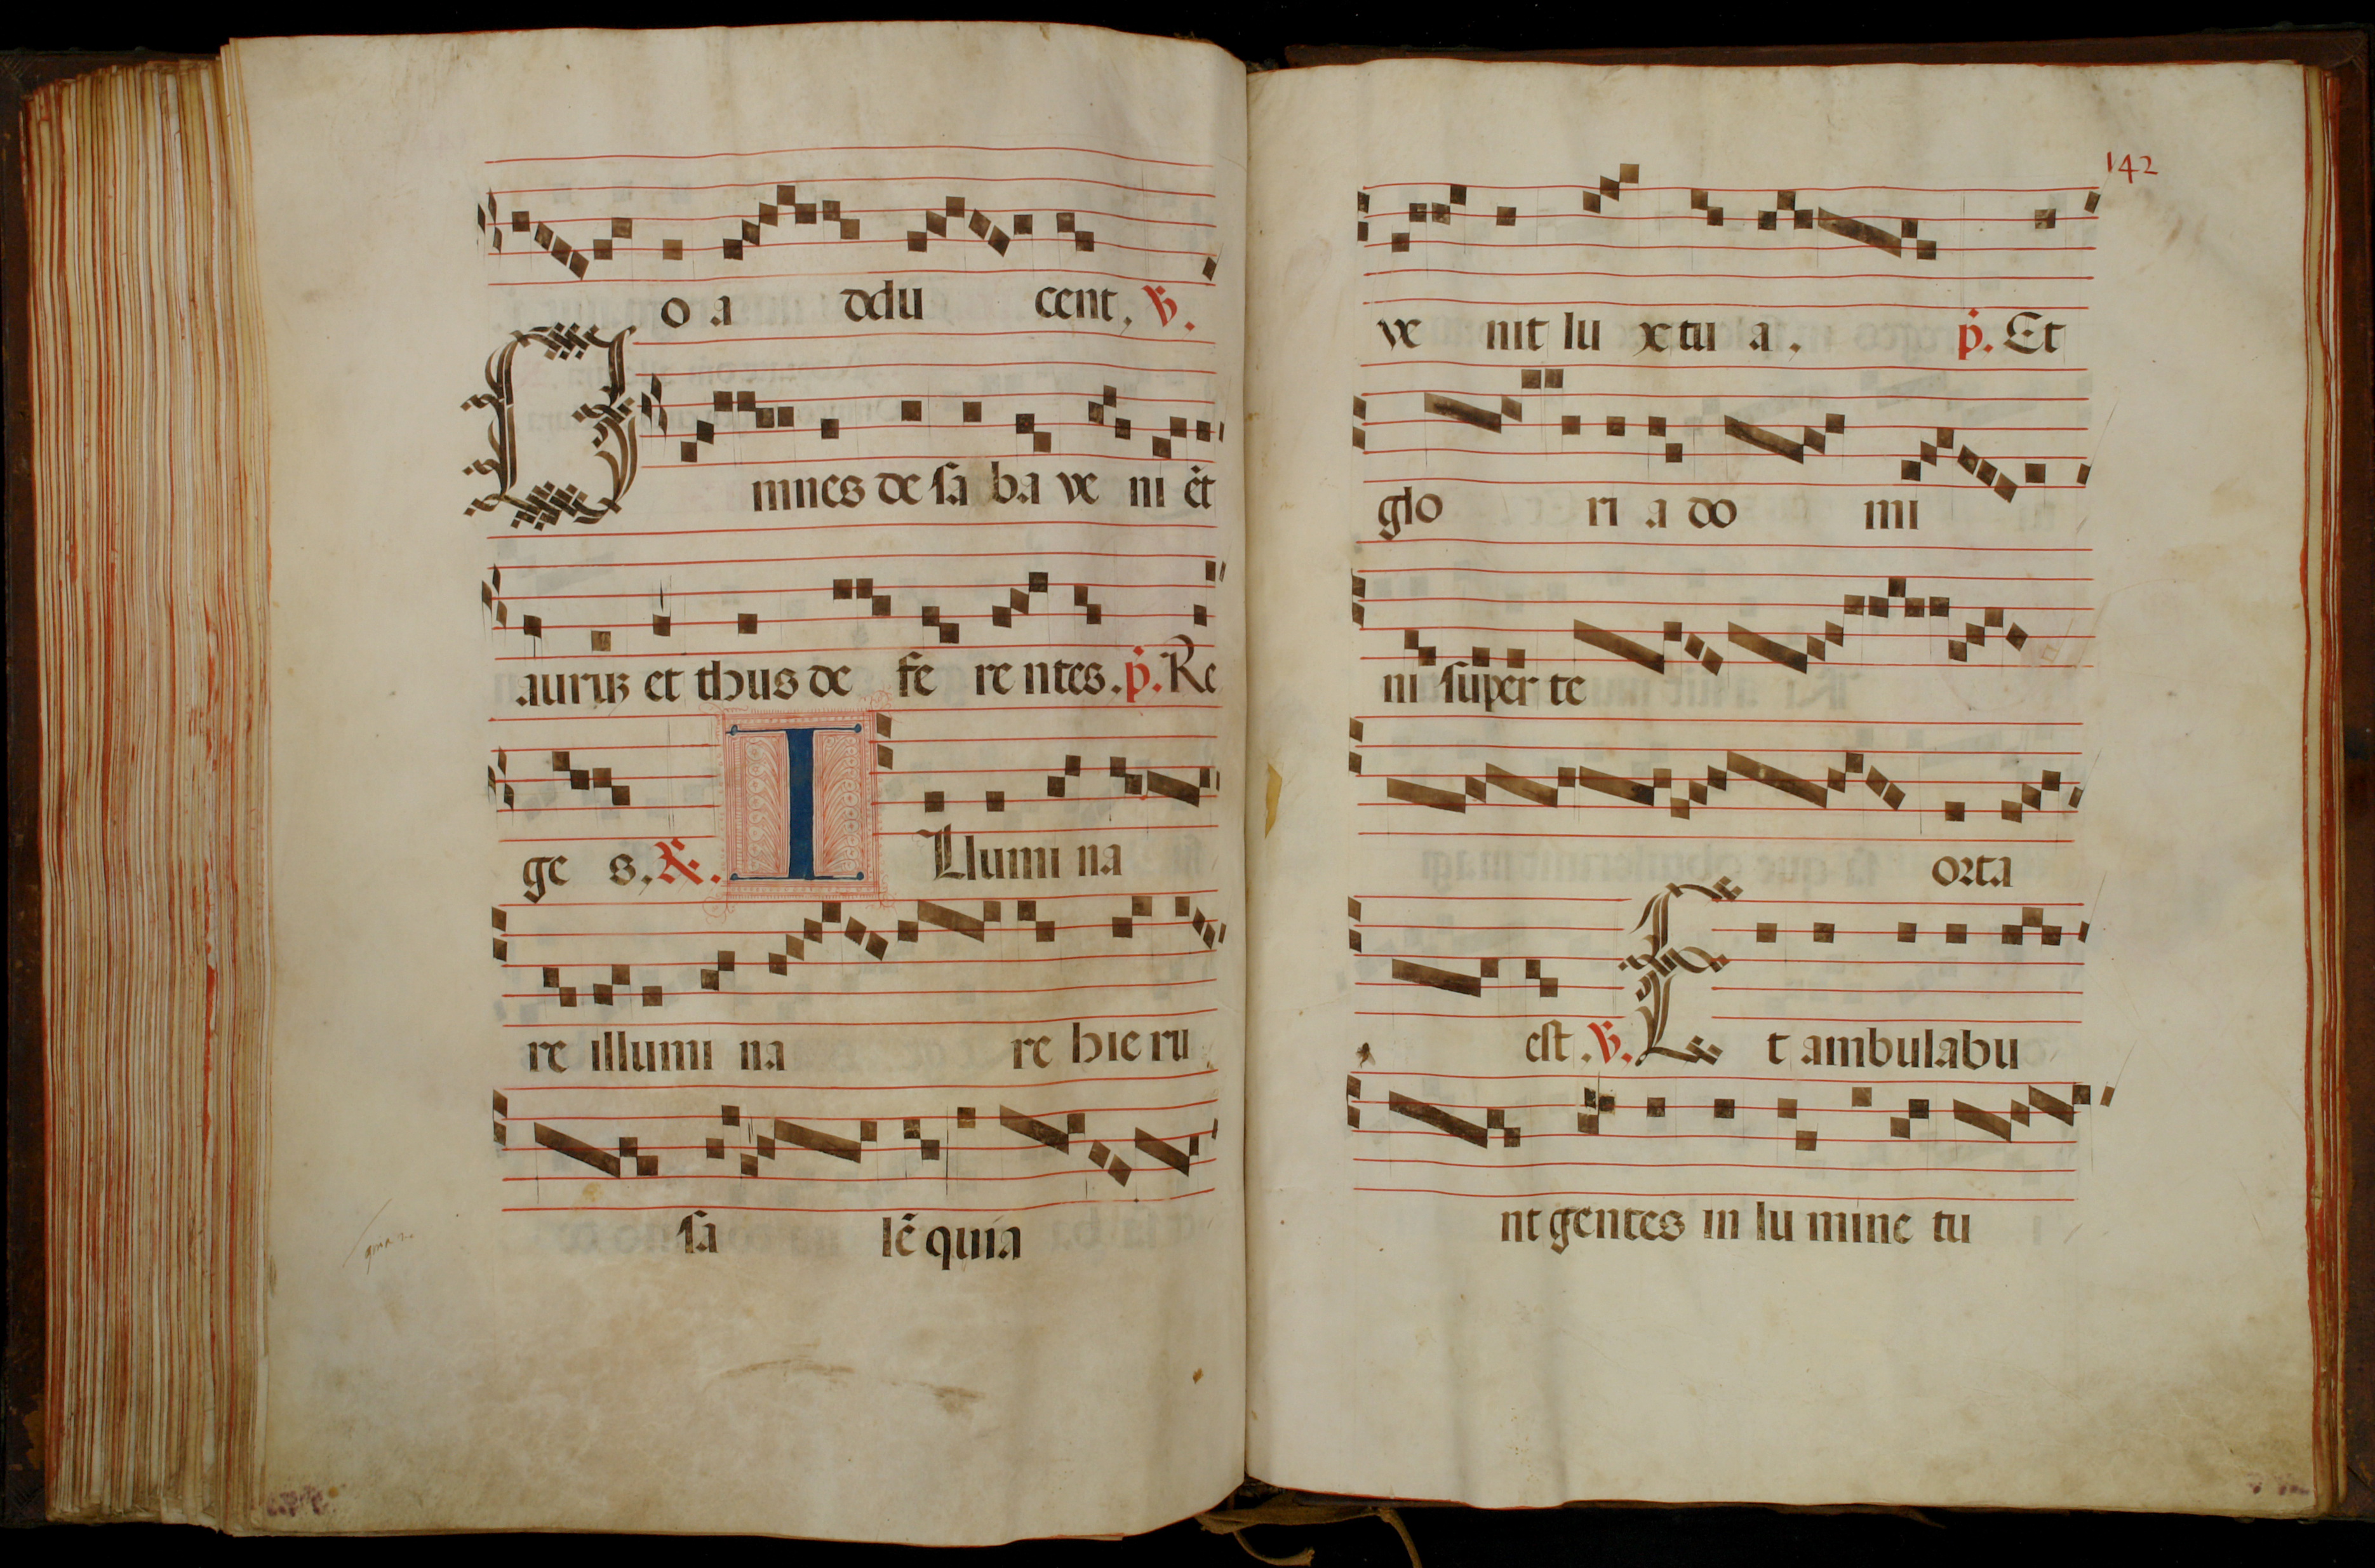 o a ddu cent. ℣.
Omnes de sa ba ve ni ēt
aurū et thus de fe re ntes. ṗ. Re
ge s. ℟. I Llumi na
re illumi na re hie ru
sa lē quia
142
ve nit lu x tu a. ṗ. Et
glo ri a do mi
ni super te
orta
est. ℣. Et ambulabu
nt gentes in lu mine tu